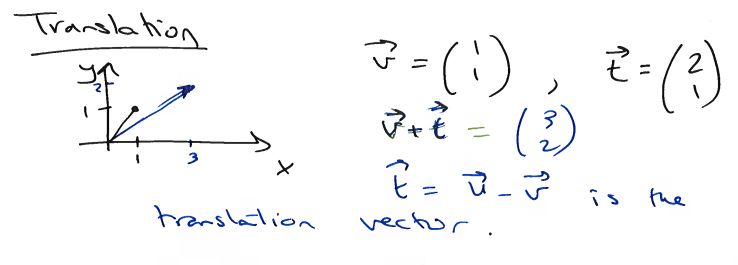 Translation
y
2
1
1 3
x
v⃗ = (1 1) , t⃗ = (2 1)
v⃗ + t⃗ = (3 2)
t⃗ = u⃗ - v⃗ is the
translation vector.